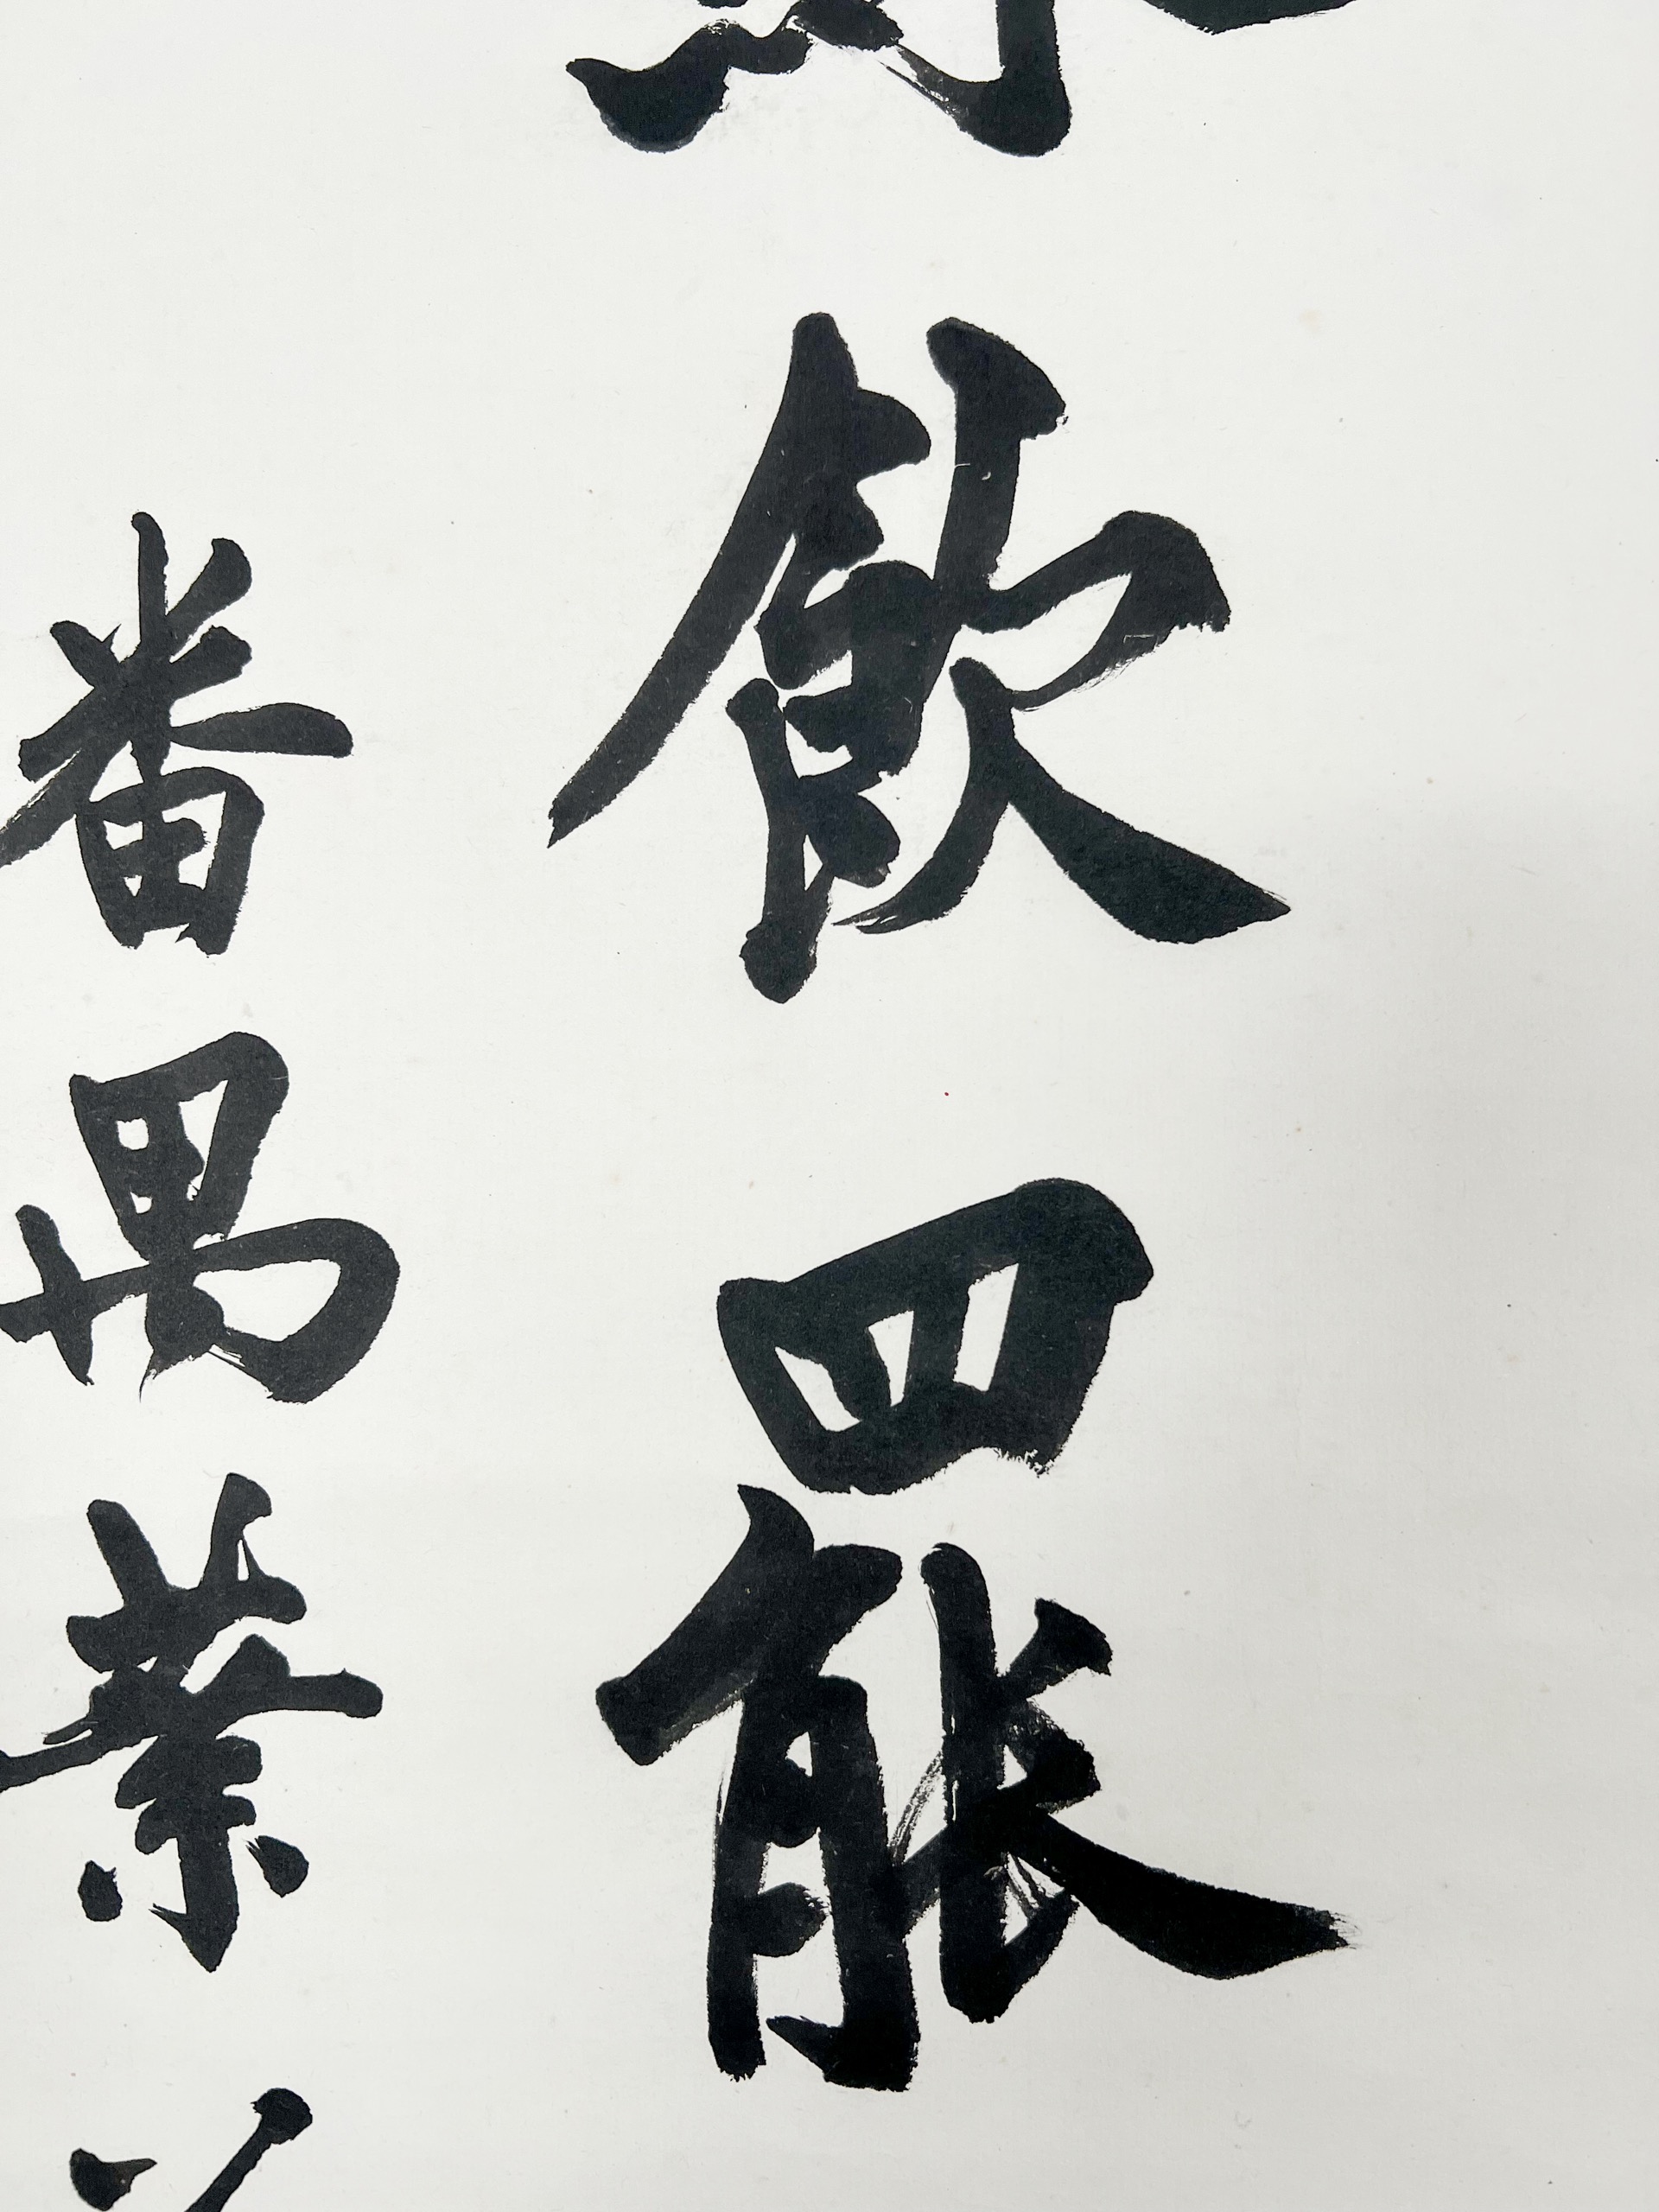 飲罷
番禺葉